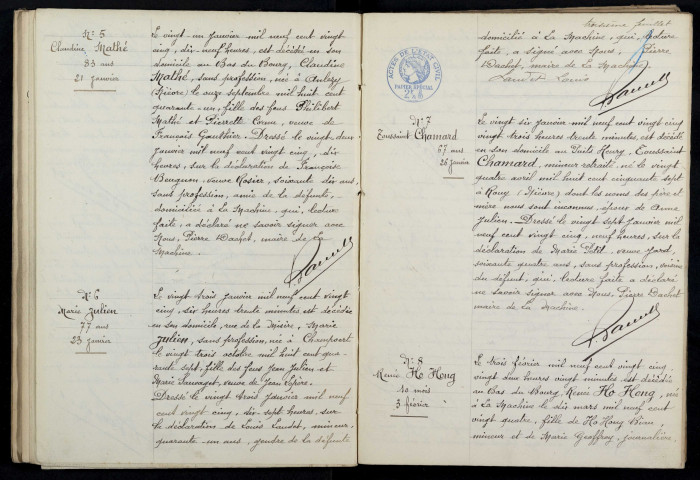 N° 5
Claudine Mathé
83 ans
21 janvier
Le vingt un janvier mil neuf cent vingt
cinq, dix-neuf heures, est décédée en son
domicile au Bas du Bourg, Claudine
Mathé, sans profession, née à Anlezy
(Nièvre) le onze septembre mil huit cent
quarante-un, fille des feus Philibert
Mathé et Pierrette Corne, veuve de
François Gauthier. Dressé le vingt deux
janvier mil neuf cent vingt cinq, dix
heures, sur la déclaration de Françoise
veuve Rosier, soixante dix ans,
sans profession, amie de la défunte,
domiciliée à La Machine, qui, lecture
faite, a déclaré ne savoir signer avec
Nous, Pierre Dachet, maire de La
Machine.
N° 6
Marie Julien
77 ans
23 janvier
Le vingt trois janvier mil neuf cent vingt
cinq, six heures trente minutes est décédée
en son domicile, rue de la Misère, Marie
Julien, sans profession, née à Champvert
le vingt trois octobre mil huit cent qua-
rante sept, fille des feus Jean Julien et
Marie Sauvaget, veuve de Jean
Dressé le vingt trois janvier mil neuf
cent vingt cinq, dix-sept heures, sur
la déclaration de Louis mineur,
quarante un ans, gendre de la défunte
troisième feuillet
domicilié à La Machine, qui, lecture
faite, a signé avec Nous, Pierre
Dachet, maire de La Machine
Louis
ACTES DE L'ETAT CIVIL
PAPIER SPECIAL
N° 7
Toussaint Chamard
67 ans
26 janvier
Le vingt six janvier mil neuf cent vingt cinq
vingt trois heures trente minutes, est décédé
en son domicile au Puits Henry, Toussaint
Chamard, mineur retraité, né le vingt
quatre avril mil huit cent cinquante sept
à Rouy (Nièvre) dont les noms des père et
mère nous sont inconnus, époux de Anne
Julien. Dressé le vingt sept janvier mil
neuf cent vingt cinq, neuf heures, sur la
déclaration de Marie Petit, veuve
soixante quatre ans, sans profession, voisine
du défunt, qui, lecture faite a déclaré
ne savoir signer avec Nous, Pierre Dachet
maire de La Machine.
N° 8
Renée Ho Hong
10 mois
3 février
Le trois février mil neuf cent vingt cinq
vingt deux heures vingt minutes est décédée
au Bas du Bourg, Renée Ho Hong, née
à La Machine le dix mars mil neuf cent
vingt quatre, fille de Ho Hong
mineur et de Marie Geoffroy, journalière,